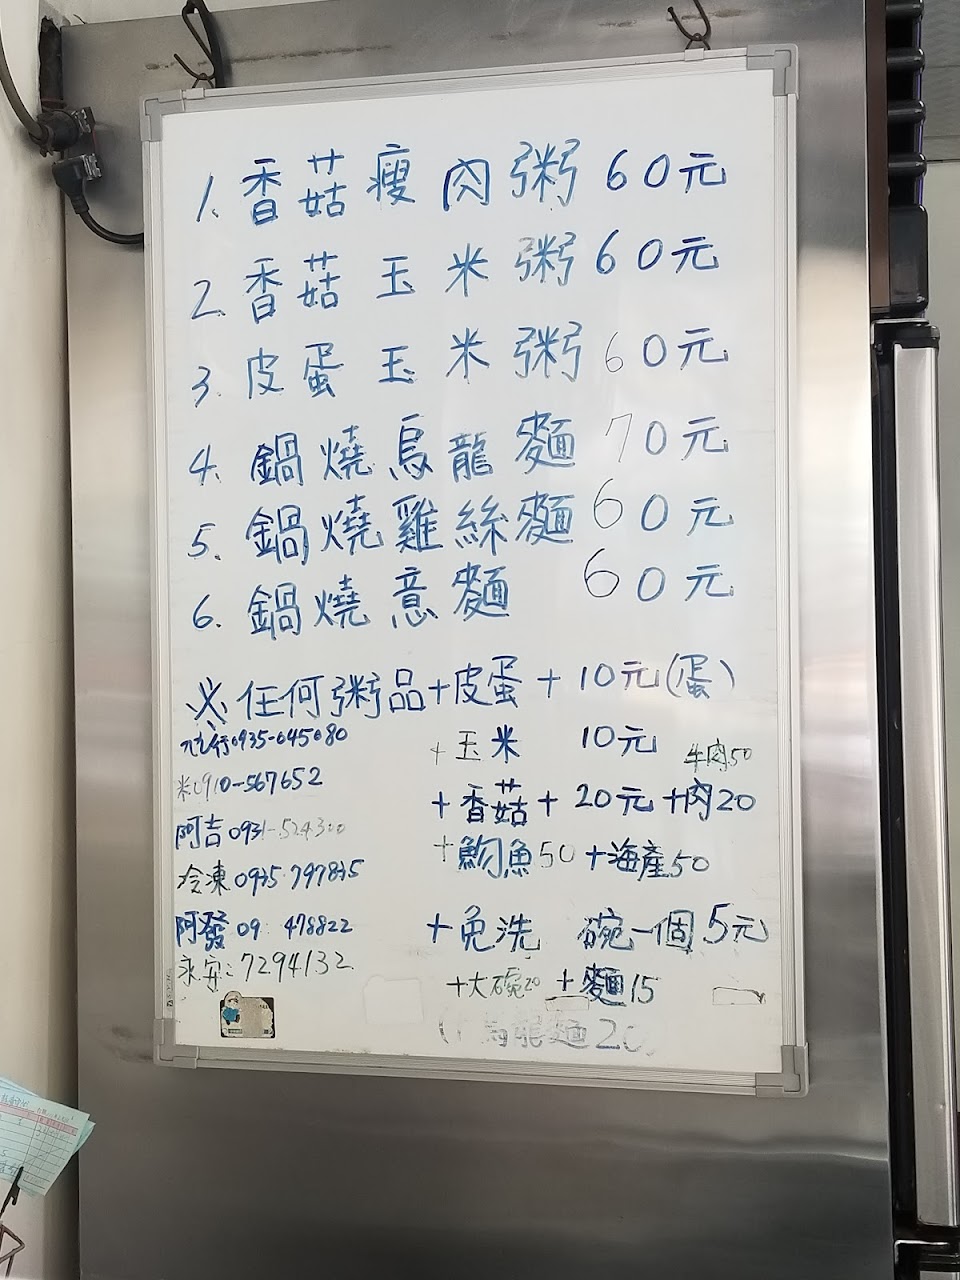 1. 香菇瘦肉粥 60元
2. 香菇玉米粥 60元
3. 皮蛋玉米粥 60元
4. 鍋燒烏龍麵 70元
5. 鍋燒雞絲麵 60元
6. 鍋燒意麵 60元
※任何粥品+皮蛋+10元(蛋)
+玉米 10元
牛肉50
+香菇+20元+肉20
+魩魚50 +海產50
+免洗 碗一個5元
+大碗20 +麵15
烏龍麵20
0935-045080
米0910-567652
阿吉 0931-5243
冷凍 0935-797835
阿發 09 478822
永安:7294132